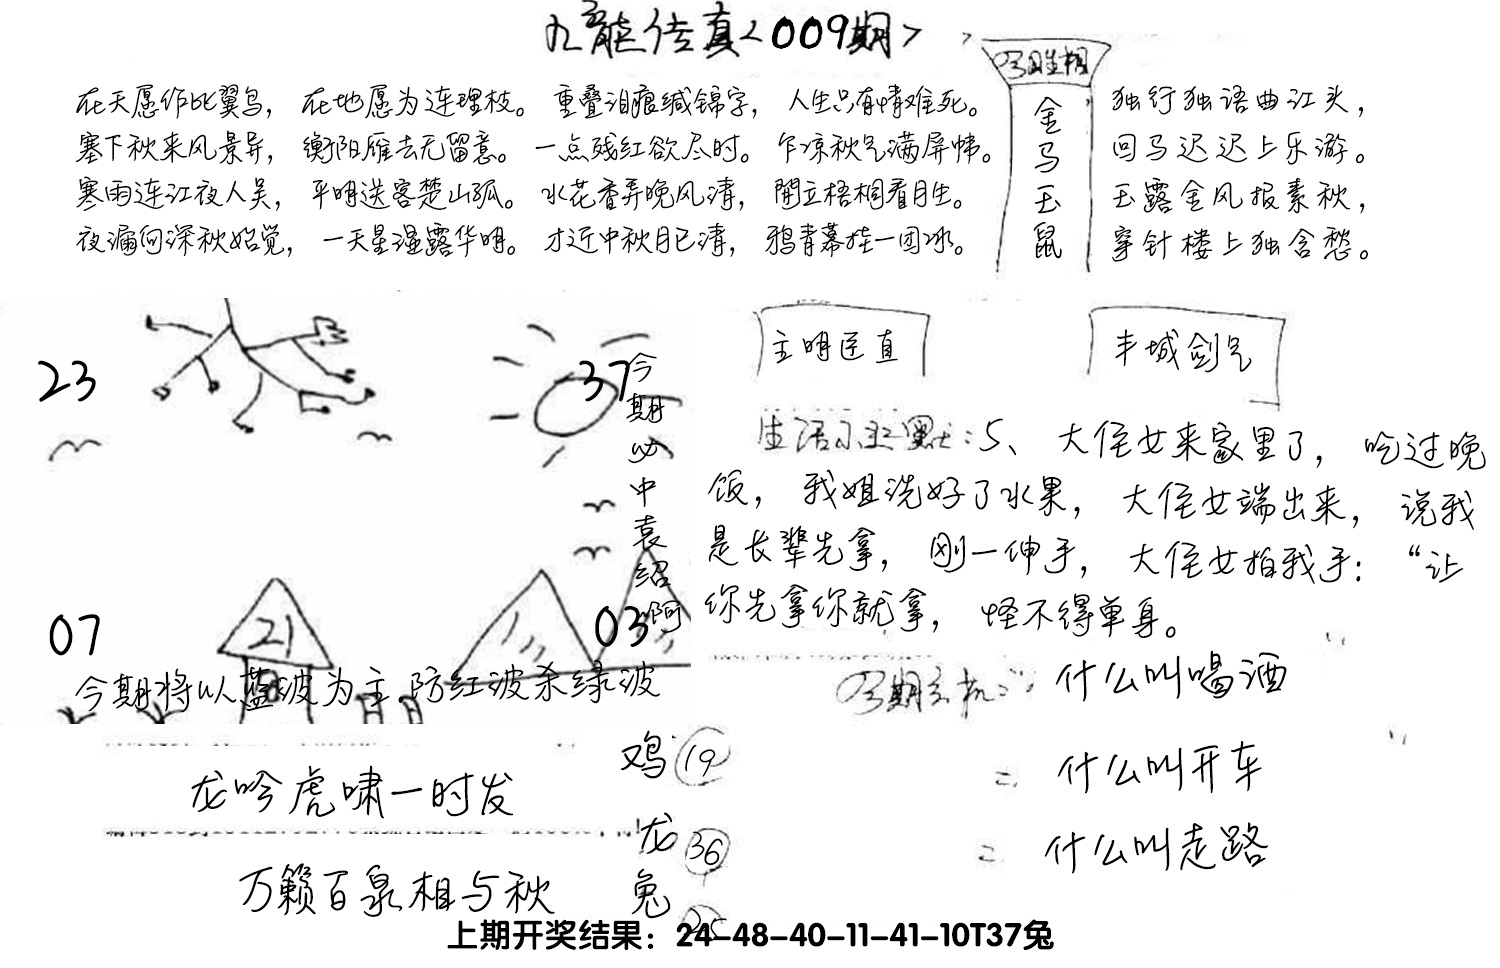 九龙传真<009期>
在天愿作比翼鸟， 在地愿为连理枝。 重叠泪痕缄锦字， 人生只有情难死。
塞下秋来风景异， 衡阳雁去无留意。 一点残红欲尽时。 乍凉秋气满屏帏。
寒雨连江夜入吴， 平明送客楚山孤。 水花香弄晚风清， 閒立梧桐看月生。
夜漏何深秋始觉， 一天星湿露华明。 才近中秋月已清， 鸦青幕挂一团冰。
今期生相
金
马
玉
鼠
独行独语曲江头，
回马迟迟上乐游。
玉露金风报素秋，
穿针楼上独含愁。
23
37
07
03
21
今期必中袁绍啊
今期将以蓝波为主 防红波杀绿波
主明臣直
丰城剑气
生活小幽默：5、 大侄女来家里了， 吃过晚
饭， 我姐洗好了水果， 大侄女端出来， 说我
是长辈先拿， 刚一伸手， 大侄女拍我手：“让
你先拿你就拿， 怪不得单身。
今期玄机： 什么叫喝酒
= 什么叫开车
= 什么叫走路
龙吟虎啸一时发
万籁百泉相与秋
鸡 19
龙 36
兔 25
上期开奖结果：24-48-40-11-41-10T37兔